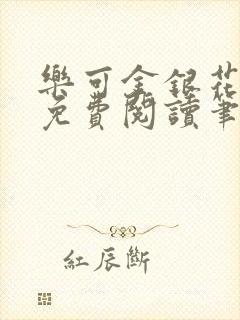 樂可金銀花
免費閱讀筆
紅辰斷